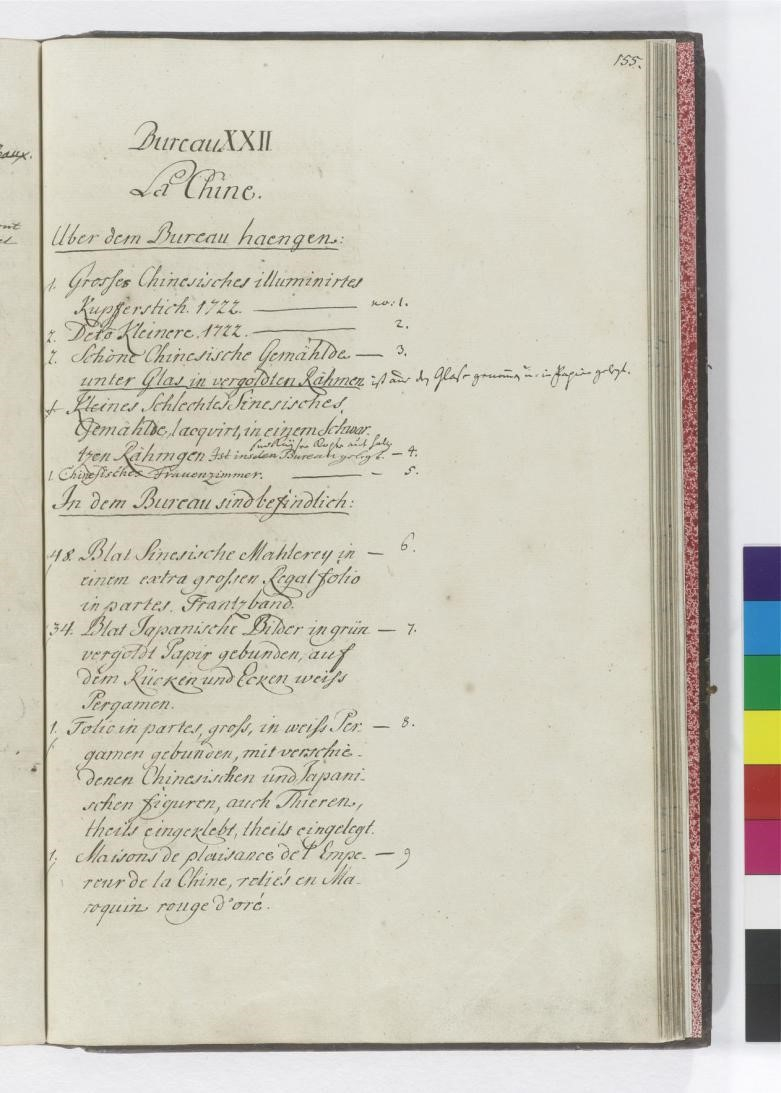 155.
Bureau XXII
La Chine.
Uber dem Bureau haengen:
1. Grosses Chinesisches illuminirtes
Kupfferstich. 1722. no: 1.
2. Deto Kleinere. 1722. 2.
2. Schöne Chinesische Gemählde — 3.
unter Glas in vergoldten Rähmen ist aus den Glase genomen u. in Papier gelegt.
Kleines Schlechtes Sinesisches
Gemählde, lacqvirt, in einem Schwar-
tzen Rähmgen Ist in den Bureau gelegt. — 4.
1. Chinesisches Frauenzimmer. — 5.
In dem Bureau sind befindlich:
48. Blat Sinesische Mahlerey in — 6.
einem extra grossen Regal folio
in partes. Frantzband.
34. Blat Japanische Bilder in grün — 7.
vergoldt Papir gebunden, auf
dem Rücken und Ecken weiss
Pergamen.
1. Folio in partes, gross, in weiss Per- — 8.
gamen gebunden, mit verschie-
denen Chinesischen und Japani-
schen figuren, auch Thieren,
theils eingeklebt, theils eingelegt.
1. Maisons de plaisance de l'Empe- — 9
reur de la Chine, reliés en Ma-
roquin rouge d'oré.